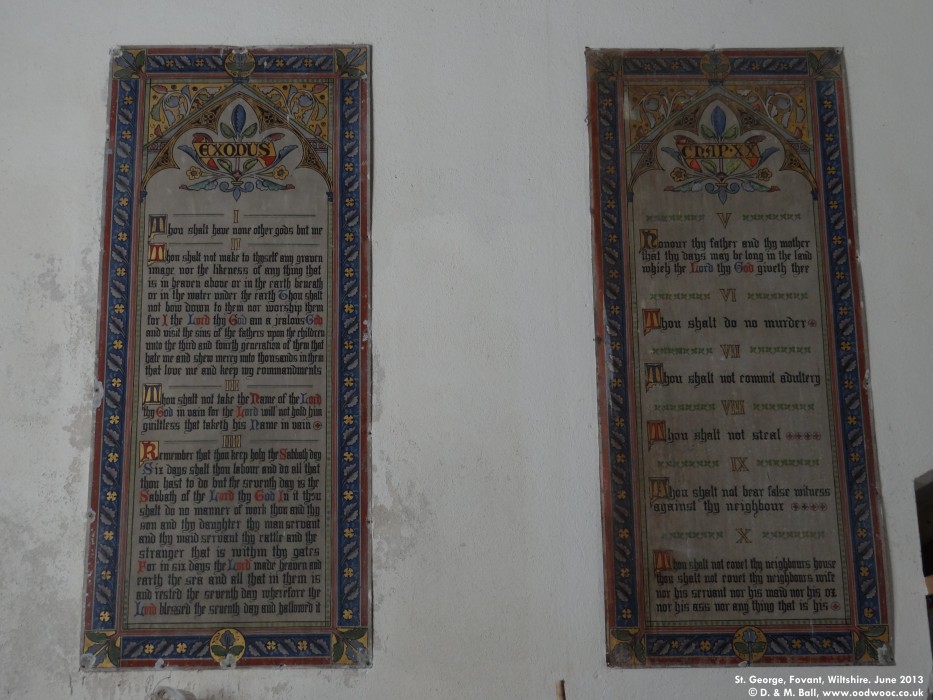 EXODUS
I
Thou shalt have none other gods but me
II
Thou shalt not make to thyself any graven
image nor the likeness of any thing that
is in heaven above or in the earth beneath
or in the water under the earth Thou shalt
not bow down to them nor worship them
for I the Lord thy God am a jealous God
and visit the sins of the fathers upon the children
unto the third and fourth generation of them that
hate me and shew mercy unto thousands in them
that love me and keep my commandments
III
Thou shalt not take the Name of the Lord
thy God in vain for the Lord will not hold him
guiltless that taketh his Name in vain
IIII
Remember that thou keep holy the Sabbath day
Six days shalt thou labour and do all that
thou hast to do but the seventh day is the
Sabbath of the Lord thy God In it thou
shalt do no manner of work thou and thy
son and thy daughter thy man servant
and thy maid servant thy cattle and the
stranger that is within thy gates
For in six days the Lord made heaven and
earth the sea and all that in them is
and rested the seventh day wherefore the
Lord blessed the seventh day and hallowed it
CHAP·XX
V
Honour thy father and thy mother
that thy days may be long in the land
which the Lord thy God giveth thee
VI
Thou shalt do no murder
VII
Thou shalt not commit adultery
VIII
Thou shalt not steal
IX
Thou shalt not bear false witness
against thy neighbour
X
Thou shalt not covet thy neighbours house
thou shalt not covet thy neighbours wife
nor his servant nor his maid nor his ox
nor his ass nor any thing that is his
St. George, Fovant, Wiltshire. June 2013
© D. & M. Ball, www.oodwooc.co.uk